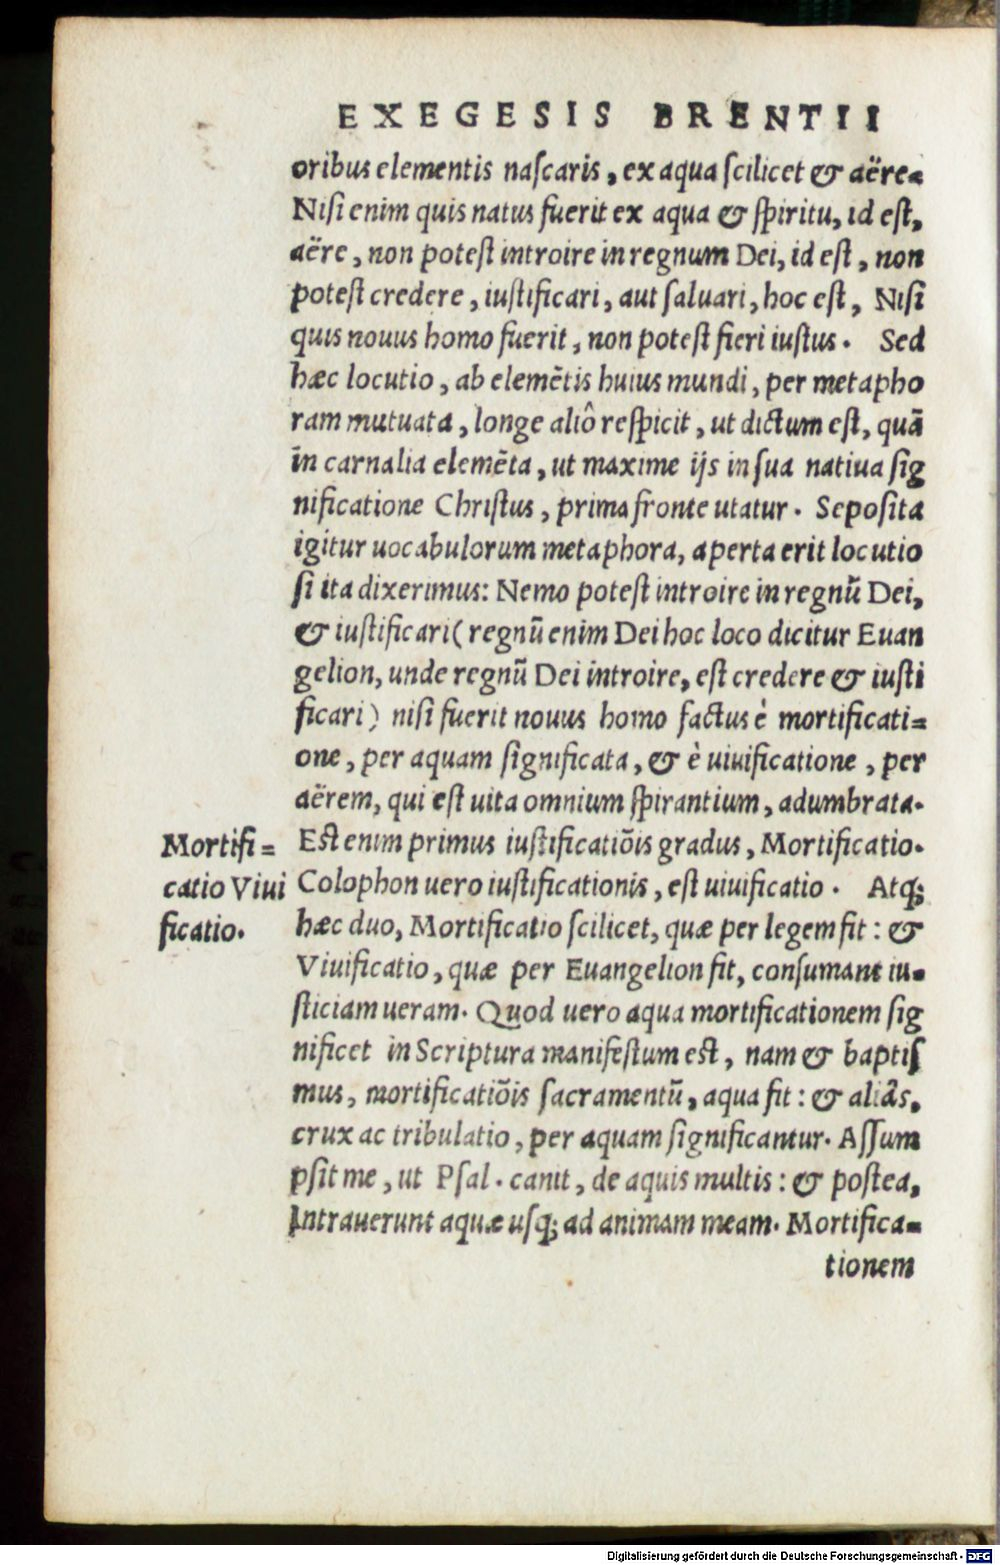 EXEGESIS BRENTII
oribus elementis nascaris, ex aqua scilicet & aëre.
Nisi enim quis natus fuerit ex aqua & spiritu, id est,
aëre, non potest introire in regnum Dei, id est, non
potest credere, iustificari, aut saluari, hoc est, Nisi
quis nouus homo fuerit, non potest fieri iustus. Sed
hæc locutio, ab elemētis huius mundi, per metapho
ram mutuata, longe aliô respicit, ut dictum est, quā
in carnalia elemēta, ut maxime ijs in sua natiua sig
nificatione Christus, prima fronte utatur. Seposita
igitur uocabulorum metaphora, aperta erit locutio
si ita dixerimus: Nemo potest introire in regnū Dei,
& iustificari (regnū enim Dei hoc loco dicitur Euan
gelion, unde regnū Dei introire, est credere & iusti
ficari) nisi fuerit nouus homo factus è mortificati=
one, per aquam significata, & è uiuificatione, per
aërem, qui est uita omnium spirantium, adumbrata.
Est enim primus iustificatiōis gradus, Mortificatio.
Colophon uero iustificationis, est uiuificatio. Atq;
hæc duo, Mortificatio scilicet, quæ per legem fit: &
Viuificatio, quæ per Euangelion fit, consumant iu=
sticiam ueram. Quod uero aqua mortificationem sig
nificet in Scriptura manifestum est, nam & baptis
mus, mortificatiōis sacramentū, aqua fit: & aliâs,
crux ac tribulatio, per aquam significantur. Assum
psit me, ut Psal. canit, de aquis multis: & postea,
Intrauerunt aquæ usq; ad animam meam. Mortifica=
tionem
Mortifi=
catio Viui
ficatio.
Digitalisierung gefördert durch die Deutsche Forschungsgemeinschaft - DFG